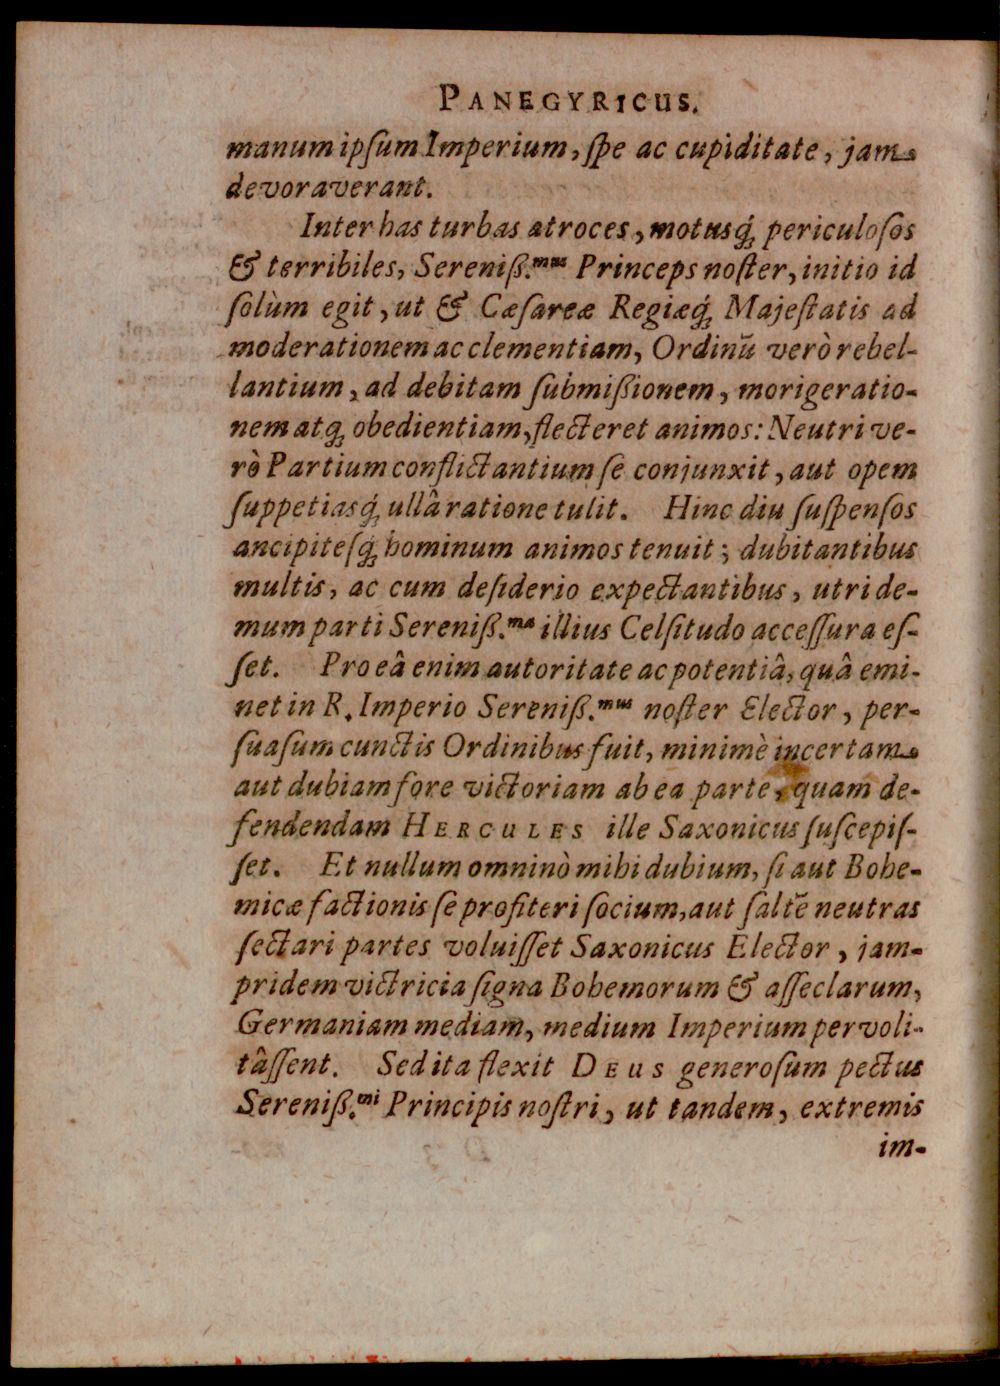 PANEGYRICUS.
manum ipſum Imperium, ſpe ac cupiditate, jam
devoraverant.
Inter has turbas atroces, motusq́; periculoſos
& terribiles, Sereniß.mus Princeps noſter, initio id
ſolùm egit, ut & Cæſareæ Regiæq́; Majeſtatis ad
moderationem ac clementiam, Ordinū verò rebel-
lantium, ad debitam ſubmißionem, morigeratio-
nem atq; obedientiam, flecteret animos: Neutri ve-
rò Partium conflictantium ſe conjunxit, aut opem
ſuppetiasq́; ullâ ratione tulit. Hinc diu ſuſpenſos
ancipiteſq́; hominum animos tenuit; dubitantibus
multis, ac cum deſiderio expectantibus, utri de-
mum parti Sereniß.ma illius Celſitudo acceſſura eſ-
ſet. Pro eâ enim autoritate ac potentiâ, quâ emi-
net in R. Imperio Sereniß.mus noſter Elector, per-
ſuaſum cunctis Ordinibus fuit, minimè incertam
aut dubiam fore victoriam ab ea parte, quam de-
fendendam HERCULES ille Saxonicus ſuſcepiſ-
ſet. Et nullum omninò mihi dubium, ſi aut Bohe-
micæ factionis ſe profiteri ſocium, aut ſaltē neutras
ſectari partes voluiſſet Saxonicus Elector, jam-
pridem victricia ſigna Bohemorum & aſſeclarum,
Germaniam mediam, medium Imperium pervoli-
tâſſent. Sed ita flexit DEUS generoſum pectus
Sereniß.mi Principis noſtri, ut tandem, extremis
im-